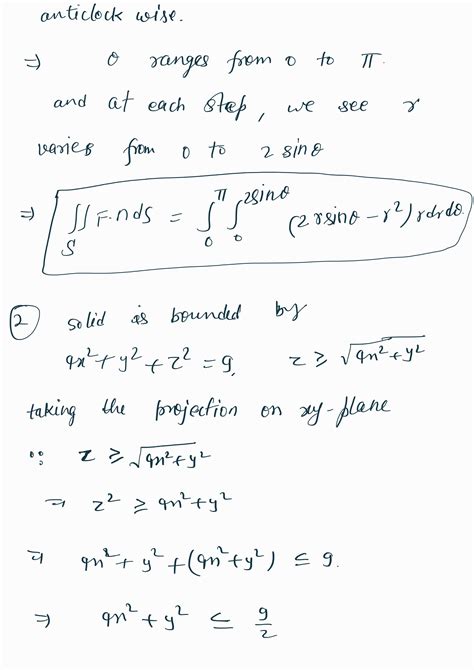 anticlock wise.
⇒ θ ranges from 0 to π.
and at each step, we see r
varies from 0 to 2 sinθ
⇒ ∬_S F.n ds = ∫_0^π ∫_0^{2sinθ} (2rsinθ - r²) r dr dθ
② solid is bounded by
9x² + y² + z² = 9, z ≥ √(9x² + y²)
taking the projection on xy-plane
∵ z ≥ √(9x² + y²)
⇒ z² ≥ 9x² + y²
⇒ 9x² + y² + (9x² + y²) ≤ 9.
⇒ 9x² + y² ≤ 9/2